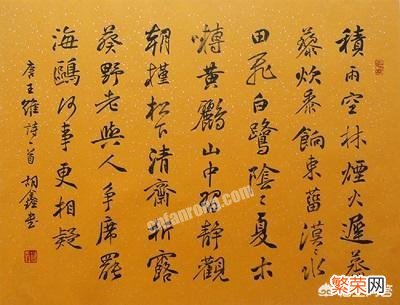 積雨空林煙火遲蒸
藜炊黍餉東菑漠々水
田飛白鷺陰々夏木
囀黃鸝山中習靜觀
朝槿松下清齋折露
葵野老與人爭席罷
海鷗何事更相疑
唐王維詩一首胡鑫書
cnfanrong.com
繁荣网